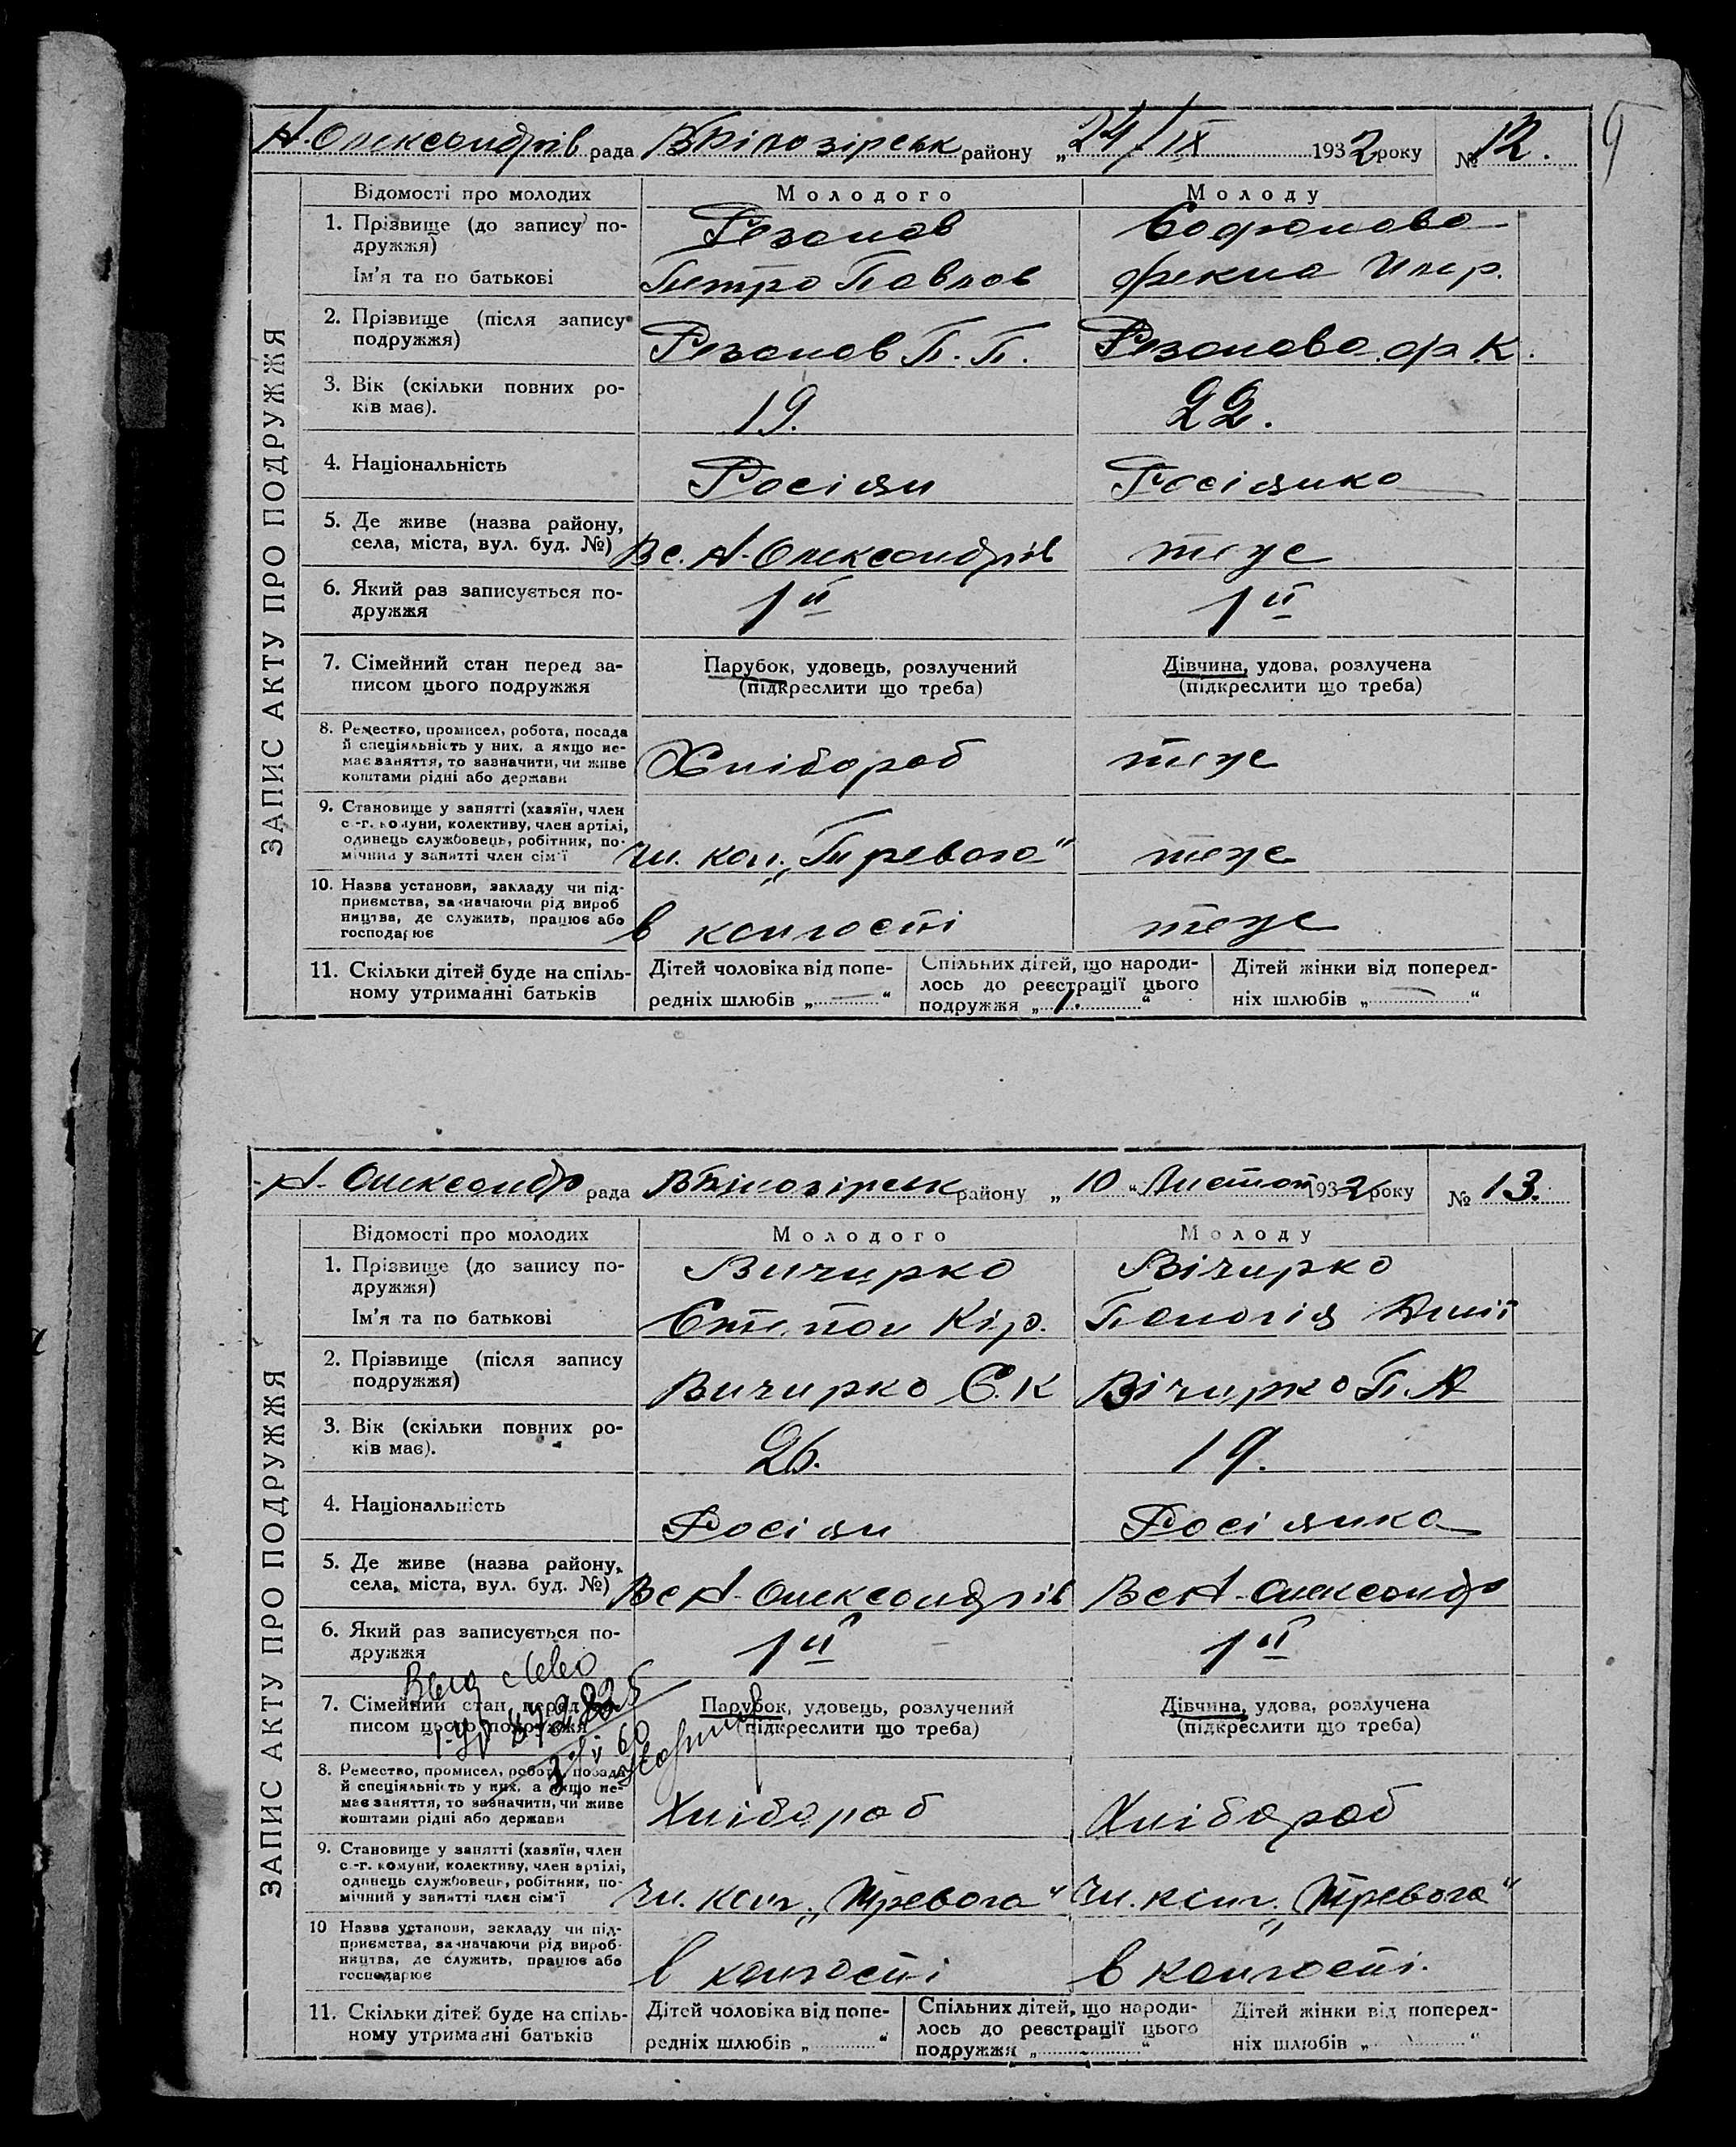 А-Олександрів рада ВБілозірськ району „24/IX 1932 року № 12.
Відомості про молодих
Молодого
Молоду
ЗАПИС АКТУ ПРО ПОДРУЖЖЯ
1. Прізвище (до запису по-
дружжя)
Резанов
Софронова
Ім'я та по батькові
Петро Павлов
Фекла
2. Прізвище (після запису
подружжя)
Резанов П. П.
Резанова Ф. К.
3. Вік (скільки повних ро-
ків має).
19.
22.
4. Національність
Росіян
Росіянка
5. Де живе (назва району,
села, міста, вул. буд. №)
Вс. А-Олександрів
теже
6. Який раз записується по-
дружжя
1й
1й
7. Сімейний стан перед за-
писом цього подружжя
Парубок, удовець, розлучений
(підкреслити що треба)
Дівчина, удова, розлучена
(підкреслити що треба)
8. Ремество, промисел, робота, посада
й спеціяльність у них, а якщо не-
має заняття, то зазначити, чи живе
коштами рідні або держави
Хлібороб
теже
9. Становище у занятті (хазяїн, член
с.-г. комуни, колективу, член артілі,
одинець службовець, робітник, по-
мічний у занятті член сім'ї
чл. кол. „Тревога"
теже
10. Назва установи, закладу чи під-
приємства, зазначаючи рід вироб
ництва, де служить, працює або
господарює
в колгоспі
теже
11. Скільки дітей буде на спіль-
ному утриманні батьків
Дітей чоловіка від попе-
редніх шлюбів „ — "
Спільних дітей, що народи-
лось до реєстрації цього
подружжя „ 1. "
Дітей жінки від поперед-
ніх шлюбів „ — "
А-Олександр рада ВБілозірськ району „10" Листоп 1932 року № 13.
Відомості про молодих
Молодого
Молоду
ЗАПИС АКТУ ПРО ПОДРУЖЖЯ
1. Прізвище (до запису по-
дружжя)
Вичирко
Вічирко
Ім'я та по батькові
Степан Кір.
Пелогія
2. Прізвище (після запису
подружжя)
Вичирко С. К
Вічирко П. А
3. Вік (скільки повних ро-
ків має).
26.
19.
4. Національність
Росіян
Росіянка
5. Де живе (назва району,
села, міста, вул. буд. №)
Вс А-Олександрів
Вс А-Олександр
6. Який раз записується по-
дружжя
1й
1й
7. Сімейний стан перед за-
писом цього подружжя
Парубок, удовець, розлучений
(підкреслити що треба)
Дівчина, удова, розлучена
(підкреслити що треба)
8. Ремество, промисел, робота, посада
й спеціяльність у них, а якщо не-
має заняття, то зазначити, чи живе
коштами рідні або держави
Хлібороб
Хлібороб
9. Становище у занятті (хазяїн, член
с.-г. комуни, колективу, член артілі,
одинець службовець, робітник, по-
мічний у занятті член сім'ї
чл. колг. „Тревога"
чл. колг. „Тревога"
10 Назва установи, закладу чи під-
приємства, зазначаючи рід вироб-
ництва, де служить, працює або
господарює
в колгоспі
в колгоспі.
11. Скільки дітей буде на спіль-
ному утриманні батьків
Дітей чоловіка від попе-
редніх шлюбів „ "
Спільних дітей, що народи-
лось до реєстрації цього
подружжя „ - "
Дітей жінки від поперед-
ніх шлюбів „ "